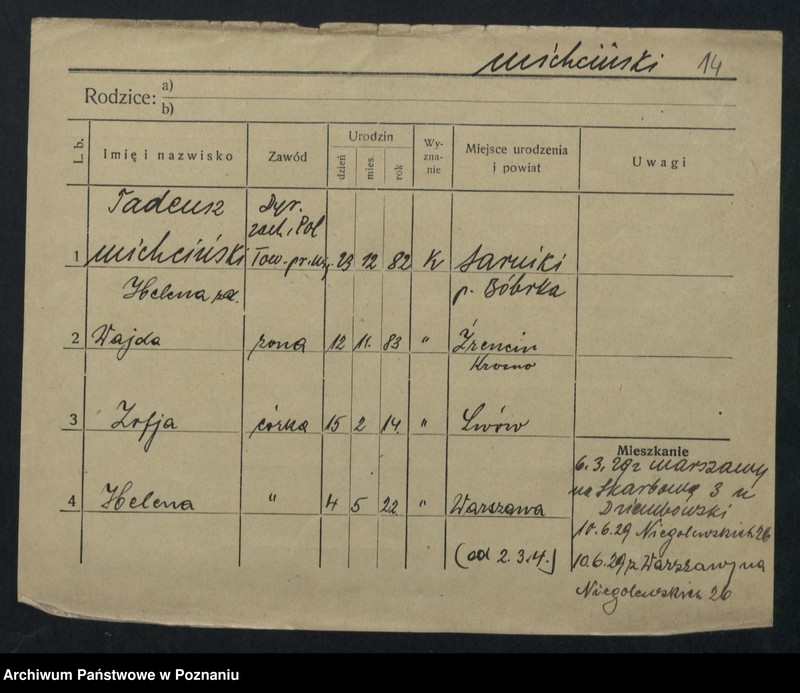 Michciński 14
Rodzice: a)
b)
L. b. Imię i nazwisko Zawód Urodzin dzień mies. rok Wy-zna-nie Miejsce urodzenia i powiat Uwagi
Tadeusz Dyr.
zach. Pol
1 Michciński Tow. 23 12 82 K Sarniki
Helena p. Bóbrka
2 Wajda żona 12 11. 83 " Żręcin
Krosno
3 Zofja córka 15 2 14. " Lwów
Mieszkanie
6.3.29 z Warszawy
na Skarbową 3 u
4 Helena " 4 5 22. " Warszawa Dziembowski
10.6.29 Niegolewskich 26
(od 2.3.14.) 10.6.29 z Warszawy na
Niegolewskich 26
Archiwum Państwowe w Poznaniu